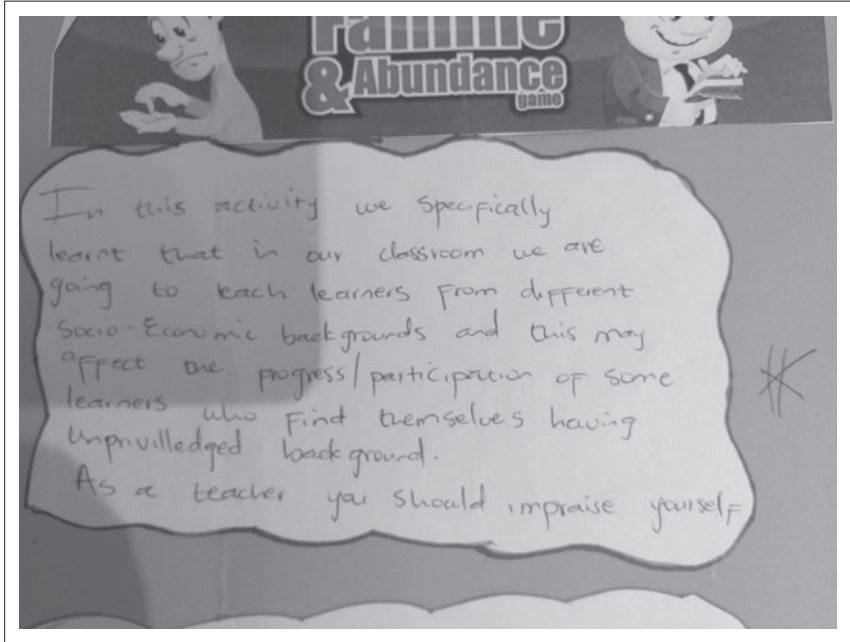 Famine
& Abundance
game
In this activity we specifically
learnt that in our classroom we are
going to teach learners from different
Socio-Economic backgrounds and this may
affect the progress/participation of some
learners who find themselves having
unprivilledged background.
As a teacher you should impraise yourself